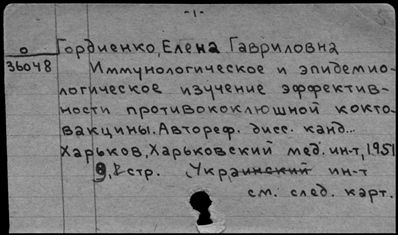 -1-
О Гордиенко, Елена Гавриловна
36048 Иммунологическое и эпидемио-
логическое изучение эффектив-
ности противококлюшной кокто-
вакцины. Автореф. дисс. канд...
Харьков, Харьковский мед. ин-т, 1951
9, стр. Украинский ин-т
см. след. карт.